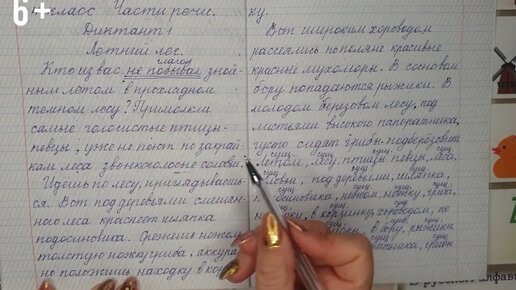 6+
класс Части речи.
Диктант 1
Летний лес.
глагол
Кто из вас не побывал зной-
ным летом в прохладном
темном лесу? Примолкли
самые голосистые птицы-
певцы, уже не поют по закрай-
кам леса звонкоголосые соловьи.
Идешь по лесу, приглядываешь-
ся. Вот под деревьями смешан-
ного леса краснеет шляпка
подосиновика. Срежешь ножом
толстую ножку гриба, аккурат-
но положишь находку в кор
ку.
Вот широким хороводом
расселились по поляне красивые
красные мухоморы. В сосновом
бору попадаются рыжики. В
молодом березовом лесу, под
листьями высокого папоротника,
густо сидят грибы-подберёзовики
сущ. сущ. сущ. сущ.
летом, лесу, птицы певцы, леса
сущ. сущ. сущ.
под деревьями, шляпка,
сущ. сущ. сущ. сущ.
ножом, ножку, гриба,
сущ. сущ.
в корзинку, хороводом, по
сущ. сущ.
в бору, рыжики
сущ.
грибы
В русском алфави